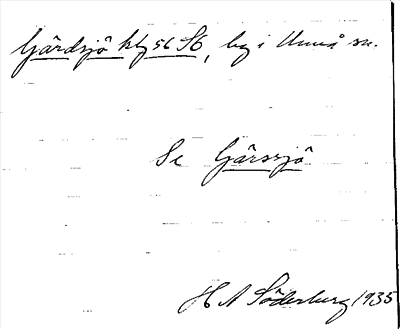 Gärdsjö hfg 56 S6, by i Umeå sn.
Se Gärssjö
H A Söderburg 1935